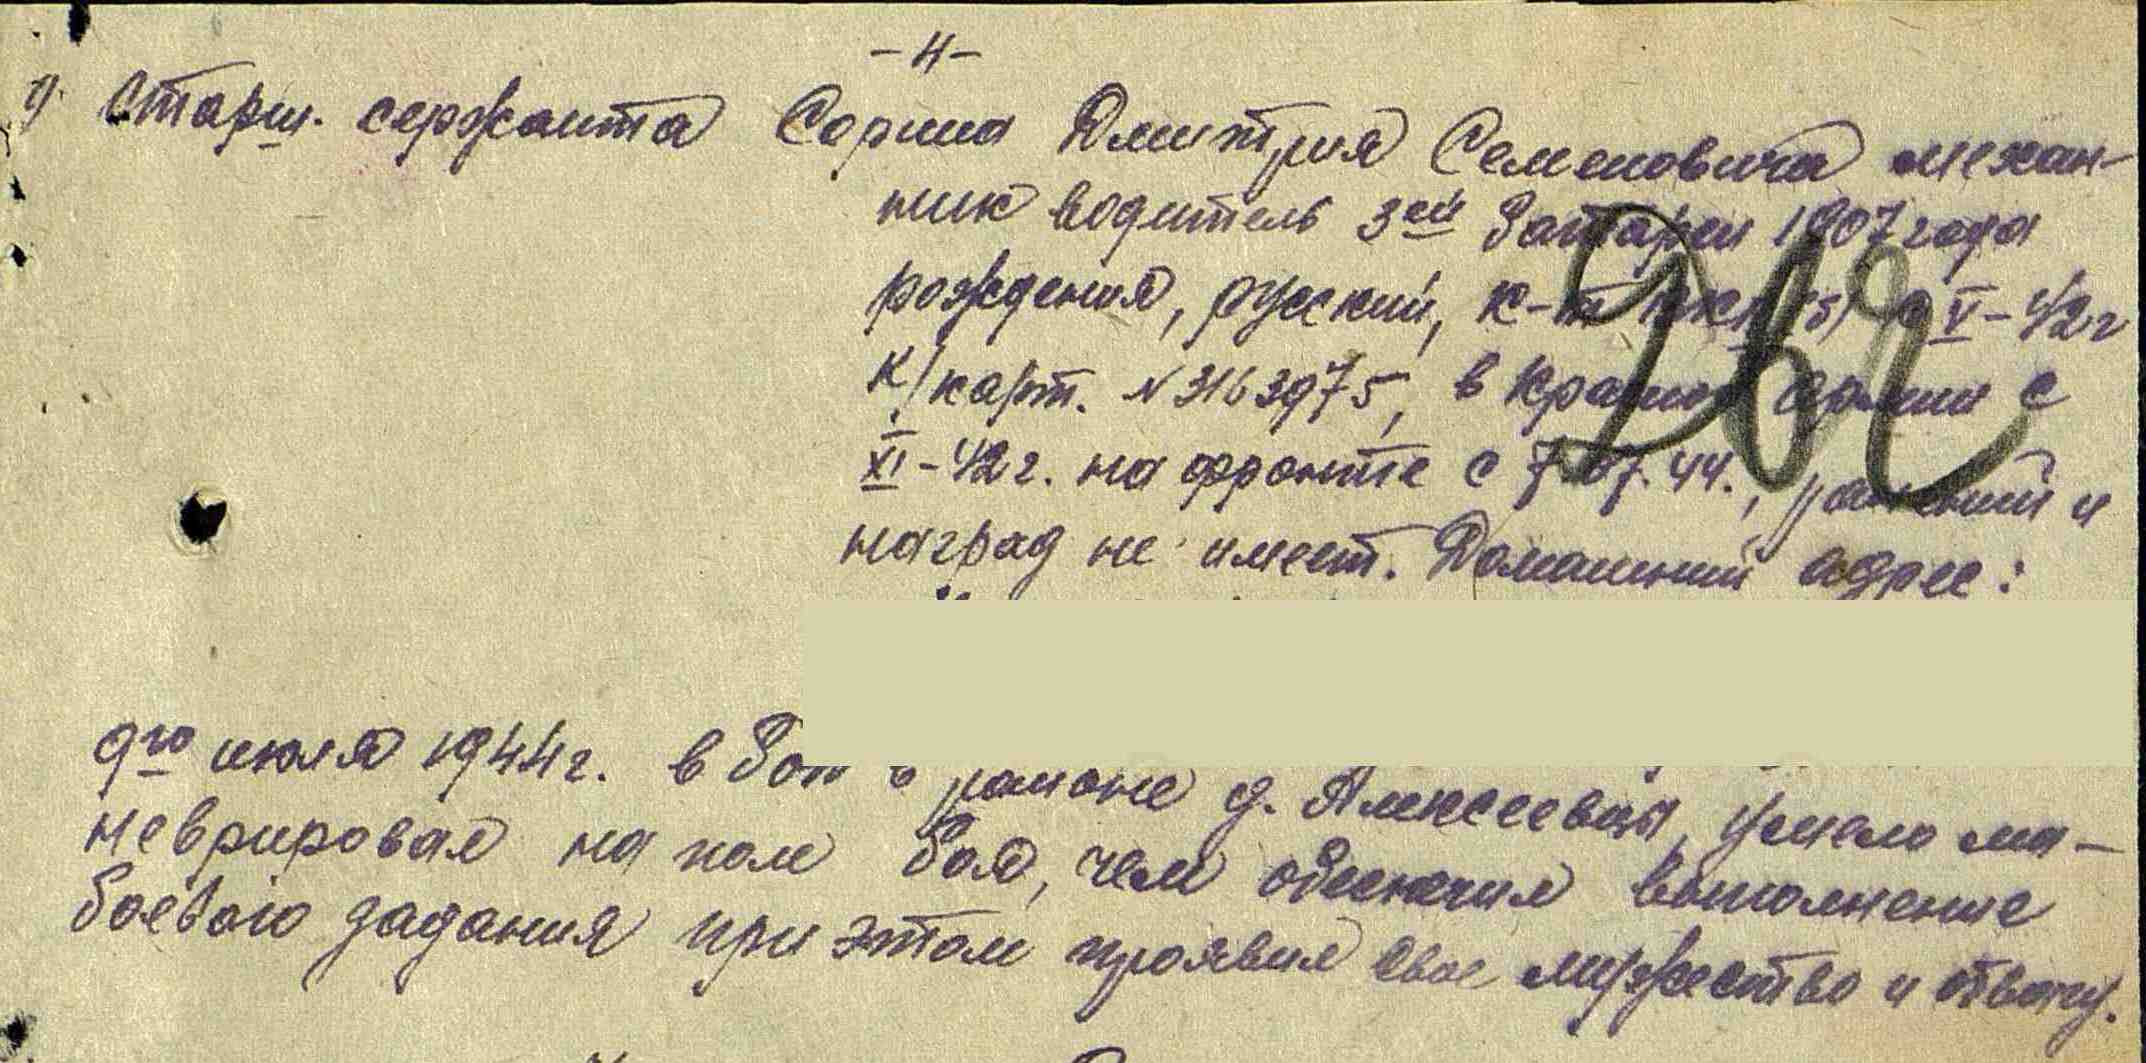 -4-
Старш. сержанта Сорина Дмитрия Семеновича механ-
ник водитель 3ей батареи 1907 года
рождения, русский, к-т ВКП(б) с V-42г
к/карт. №3163975, в Красной армии с
XI-42г. на фронте с 7.07.44., ранений и
наград не имеет. Домашний адрес:
9го июля 1944г. в бою в районе д. Алексеевцы, умело ма-
неврировал на поле боя, чем обеспечил выполнение
боевого задания при этом проявил свое мужество и отвагу.